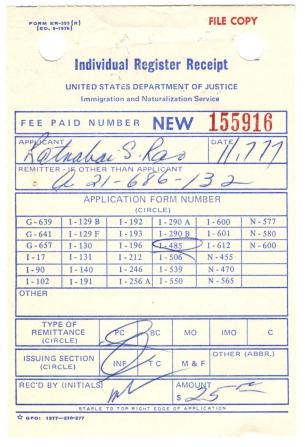 FORM ER-355 (N)
(ED. 8-1976)
FILE COPY
Individual Register Receipt
UNITED STATES DEPARTMENT OF JUSTICE
Immigration and Naturalization Service
FEE PAID NUMBER NEW 155916
APPLICANT DATE
Ratnabai S. Rao 11.7.77
REMITTER - IF OTHER THAN APPLICANT
A 21-686-132
APPLICATION FORM NUMBER
(CIRCLE)
G-639 I-129 B I-192 I-290 A I-600 N-577
G-641 I-129 F I-193 I-290 B I-601 N-580
G-657 I-130 I-196 I-485 I-612 N-600
I-17 I-131 I-212 I-506 N-455
I-90 I-140 I-246 I-539 N-470
I-102 I-191 I-256 A I-550 N-565
OTHER
TYPE OF REMITTANCE (CIRCLE) PC BC MO IMO C
ISSUING SECTION (CIRCLE) INF T C M & F OTHER (ABBR.)
REC'D BY (INITIALS) AMOUNT
$ 25
☆ GPO: 1977-230-277
STAPLE TO TOP RIGHT EDGE OF APPLICATION